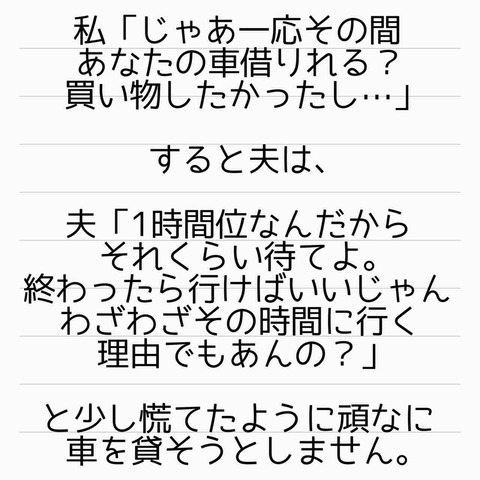 私「じゃあ一応その間
あなたの車借りれる？
買い物したかったし…」
すると夫は、
夫「1時間位なんだから
それくらい待てよ。
終わったら行けばいいじゃん
わざわざその時間に行く
理由でもあんの？」
と少し慌てたように頑なに
車を貸そうとしません。